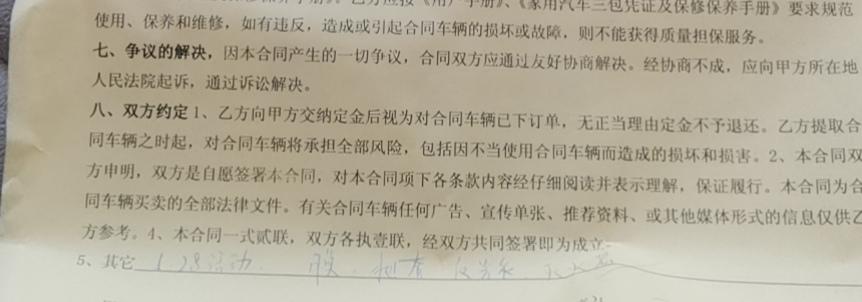 乙方应按《用户手册》、《家用汽车三包凭证及保修保养手册》要求规范
使用、保养和维修，如有违反，造成或引起合同车辆的损坏或故障，则不能获得质量担保服务。
七、争议的解决，因本合同产生的一切争议，合同双方应通过友好协商解决。经协商不成，应向甲方所在地
人民法院起诉，通过诉讼解决。
八、双方约定 1、乙方向甲方交纳定金后视为对合同车辆已下订单，无正当理由定金不予退还。乙方提取合
同车辆之时起，对合同车辆将承担全部风险，包括因不当使用合同车辆而造成的损坏和损害。2、本合同双
方申明，双方是自愿签署本合同，对本合同项下各条款内容经仔细阅读并表示理解，保证履行。本合同为合
同车辆买卖的全部法律文件。有关合同车辆任何广告、宣传单张、推荐资料、或其他媒体形式的信息仅供乙
方参考。4、本合同一式贰联，双方各执壹联，经双方共同签署即为成立
5、其它 1.28活动